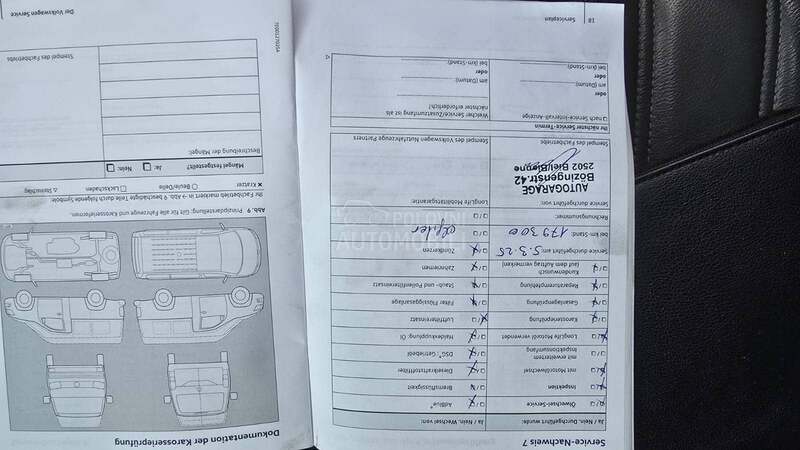 Service-Nachweis 7
Ja / Nein, Durchgeführt wurde:
Ja / Nein, Wechsel von:
Ölwechsel-Service
AdBlue®
Inspektion
Bremsflüssigkeit
mit Motorölwechsel
Dieselkraftstofffilter
mit erweitertem
Inspektionsumfang
DSG®-Getriebeöl
LongLife Motoröl verwendet
Haldexkupplung: Öl
Karosserieprüfung
Luftfiltereinsatz
Gasanlagenprüfung
Filter Flüssiggasanlage
Reparaturempfehlung
Staub- und Pollenfiltereinsatz
Kundenwunsch
(auf dem Auftrag vermerken)
Zahnriemen
Service durchgeführt am: 5.3.25
Zündkerzen
bei km-Stand: 179300
Rechnungsnummer:
Service durchgeführt von:
LongLife Mobilitätsgarantie:
AUTOGARAGE
Bözingenstr.42
2502 Biel/Bienne
Stempel des Fachbetriebs
Stempel des Volkswagen Nutzfahrzeuge Partners
Ihr nächster Service-Termin
nach Service-Intervall-Anzeige
Welcher Service/Zusatzumfang ist als
nächster erforderlich?
am (Datum)
am (Datum)
oder
oder
bei (km-Stand)
bei (km-Stand)
18
Serviceplan
Dokumentation der Karosserieprüfung
Abb. 9 Prinzipdarstellung: Gilt für alle Fahrzeuge und Karosserieformen.
Ihr Fachbetrieb markiert in → Abb. 9 beschädigte Teile durch folgende Symbole:
Kratzer
Beule/Delle
Lackschaden
Steinschlag
Mängel festgestellt?
Ja:
Nein:
Beschreibung der Mängel:
Stempel des Fachbetriebs
Der Volkswagen Service
POLOVNI
AUTOMOBILI